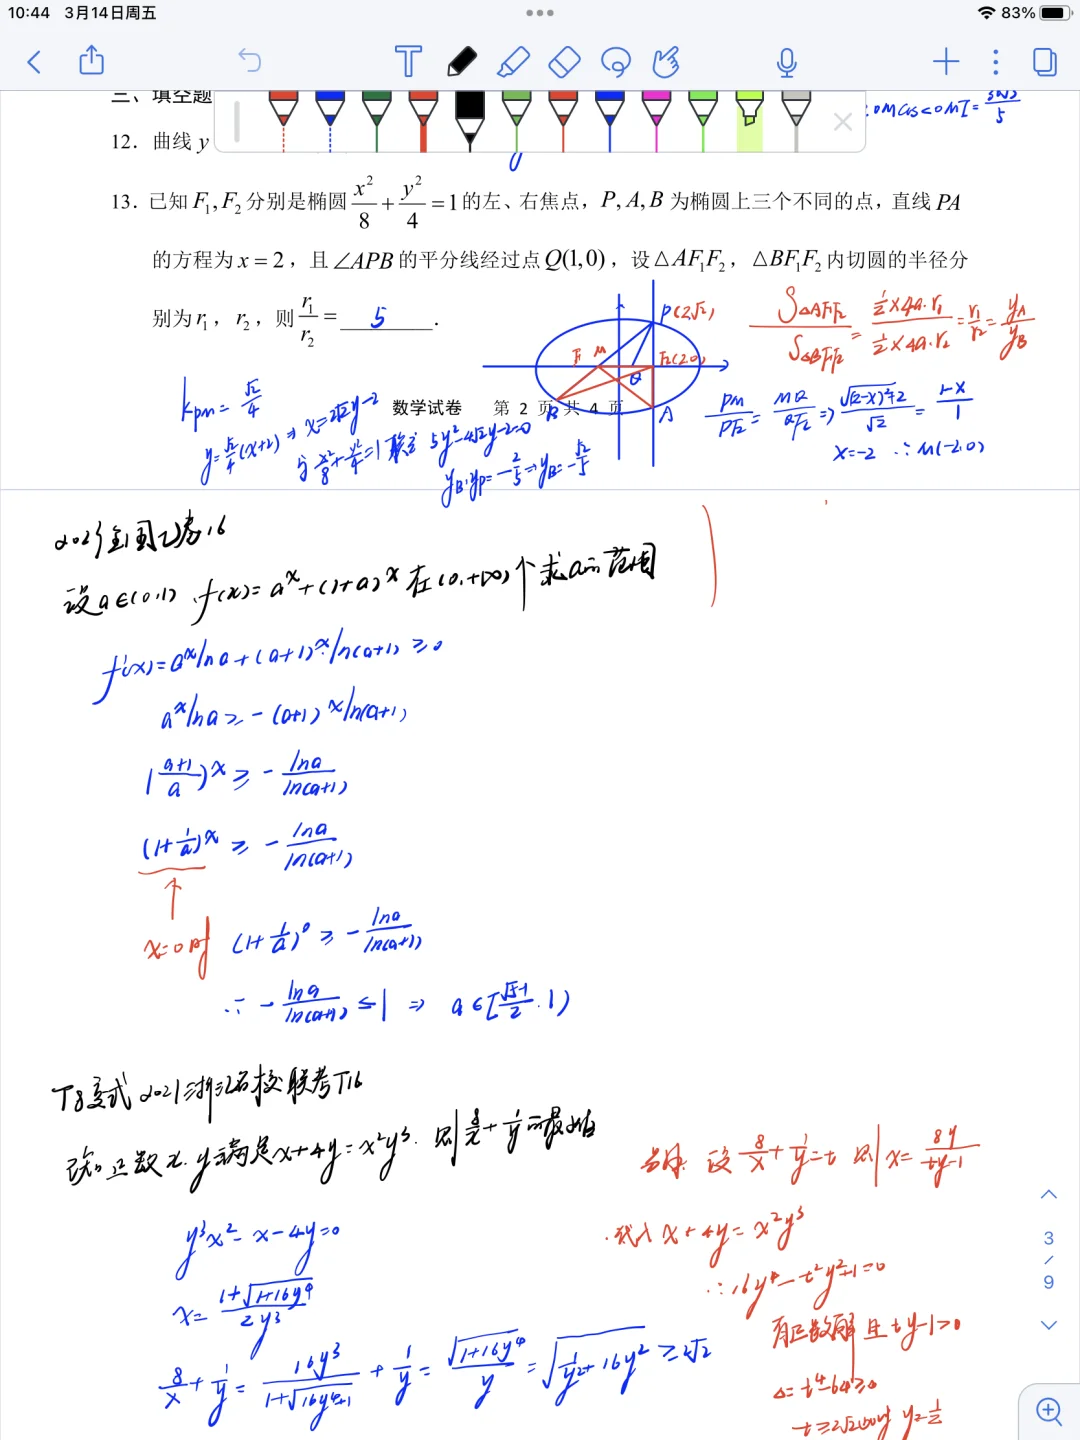 10:44 3月14日周五
83%
三、填空题
12. 曲线 y
13. 已知 F₁,F₂ 分别是椭圆 x²/8 + y²/4 = 1 的左、右焦点，P, A, B 为椭圆上三个不同的点，直线 PA
的方程为 x = 2，且 ∠APB 的平分线经过点 Q(1,0)，设 △AF₁F₂，△BF₁F₂ 内切圆的半径分
别为 r₁，r₂，则 r₁/r₂ = 5.
P(2,√2)
F₁ M Q F₂(2,0)
B A
S△AF₁F₂/S△BF₁F₂ = (½×4a·r₁)/(½×4a·r₂) = r₁/r₂ = y_A/y_B
PM/PF₂ = MQ/QF₂ ⇒ √((2-x)²+2)/√2 = (1-x)/1
x=-2 ∴M(-2,0)
k_PM = √2/4
y=√2/4(x+2) ⇒ x=2√2y-2
与 x²/8+y²/4=1 联立 5y²-4√2y-2=0
y_B·y_P=-2/5 ⇒ y_B=-√2/5
数学试卷 第 2 页 共 4 页
2023全国乙卷16
设a∈(0,1) f(x)=aˣ+(1+a)ˣ 在(0,+∞)个 求a的范围
f'(x)=aˣlna+(a+1)ˣln(a+1)≥0
aˣlna≥-(a+1)ˣln(a+1)
((a+1)/a)ˣ≥-lna/ln(a+1)
(1+1/a)ˣ≥-lna/ln(a+1)
x=0时 (1+1/a)⁰≥-lna/ln(a+1)
∴-lna/ln(a+1)≤1 ⇒ a∈[(√5-1)/2,1)
T8变式 2021浙江名校联考T16
已知正数x,y满足x+4y=x²y³,则8/x+1/y的最小值
y³x²-x-4y=0
x=(1+√(1+16y⁴))/2y³
8/x+1/y=16y³/(1+√(16y⁴+1))+1/y=√(1+16y⁴)/y=√(1/y²+16y²)≥2√2
另解 设 8/x+1/y=t 则 x=8y/(ty-1)
代入x+4y=x²y³
∴16y⁴-t²y²+1=0
有正数解 且 ty-1>0
Δ=t⁴-64≥0
t≥2√2 此时 y=1/2
3
/
9